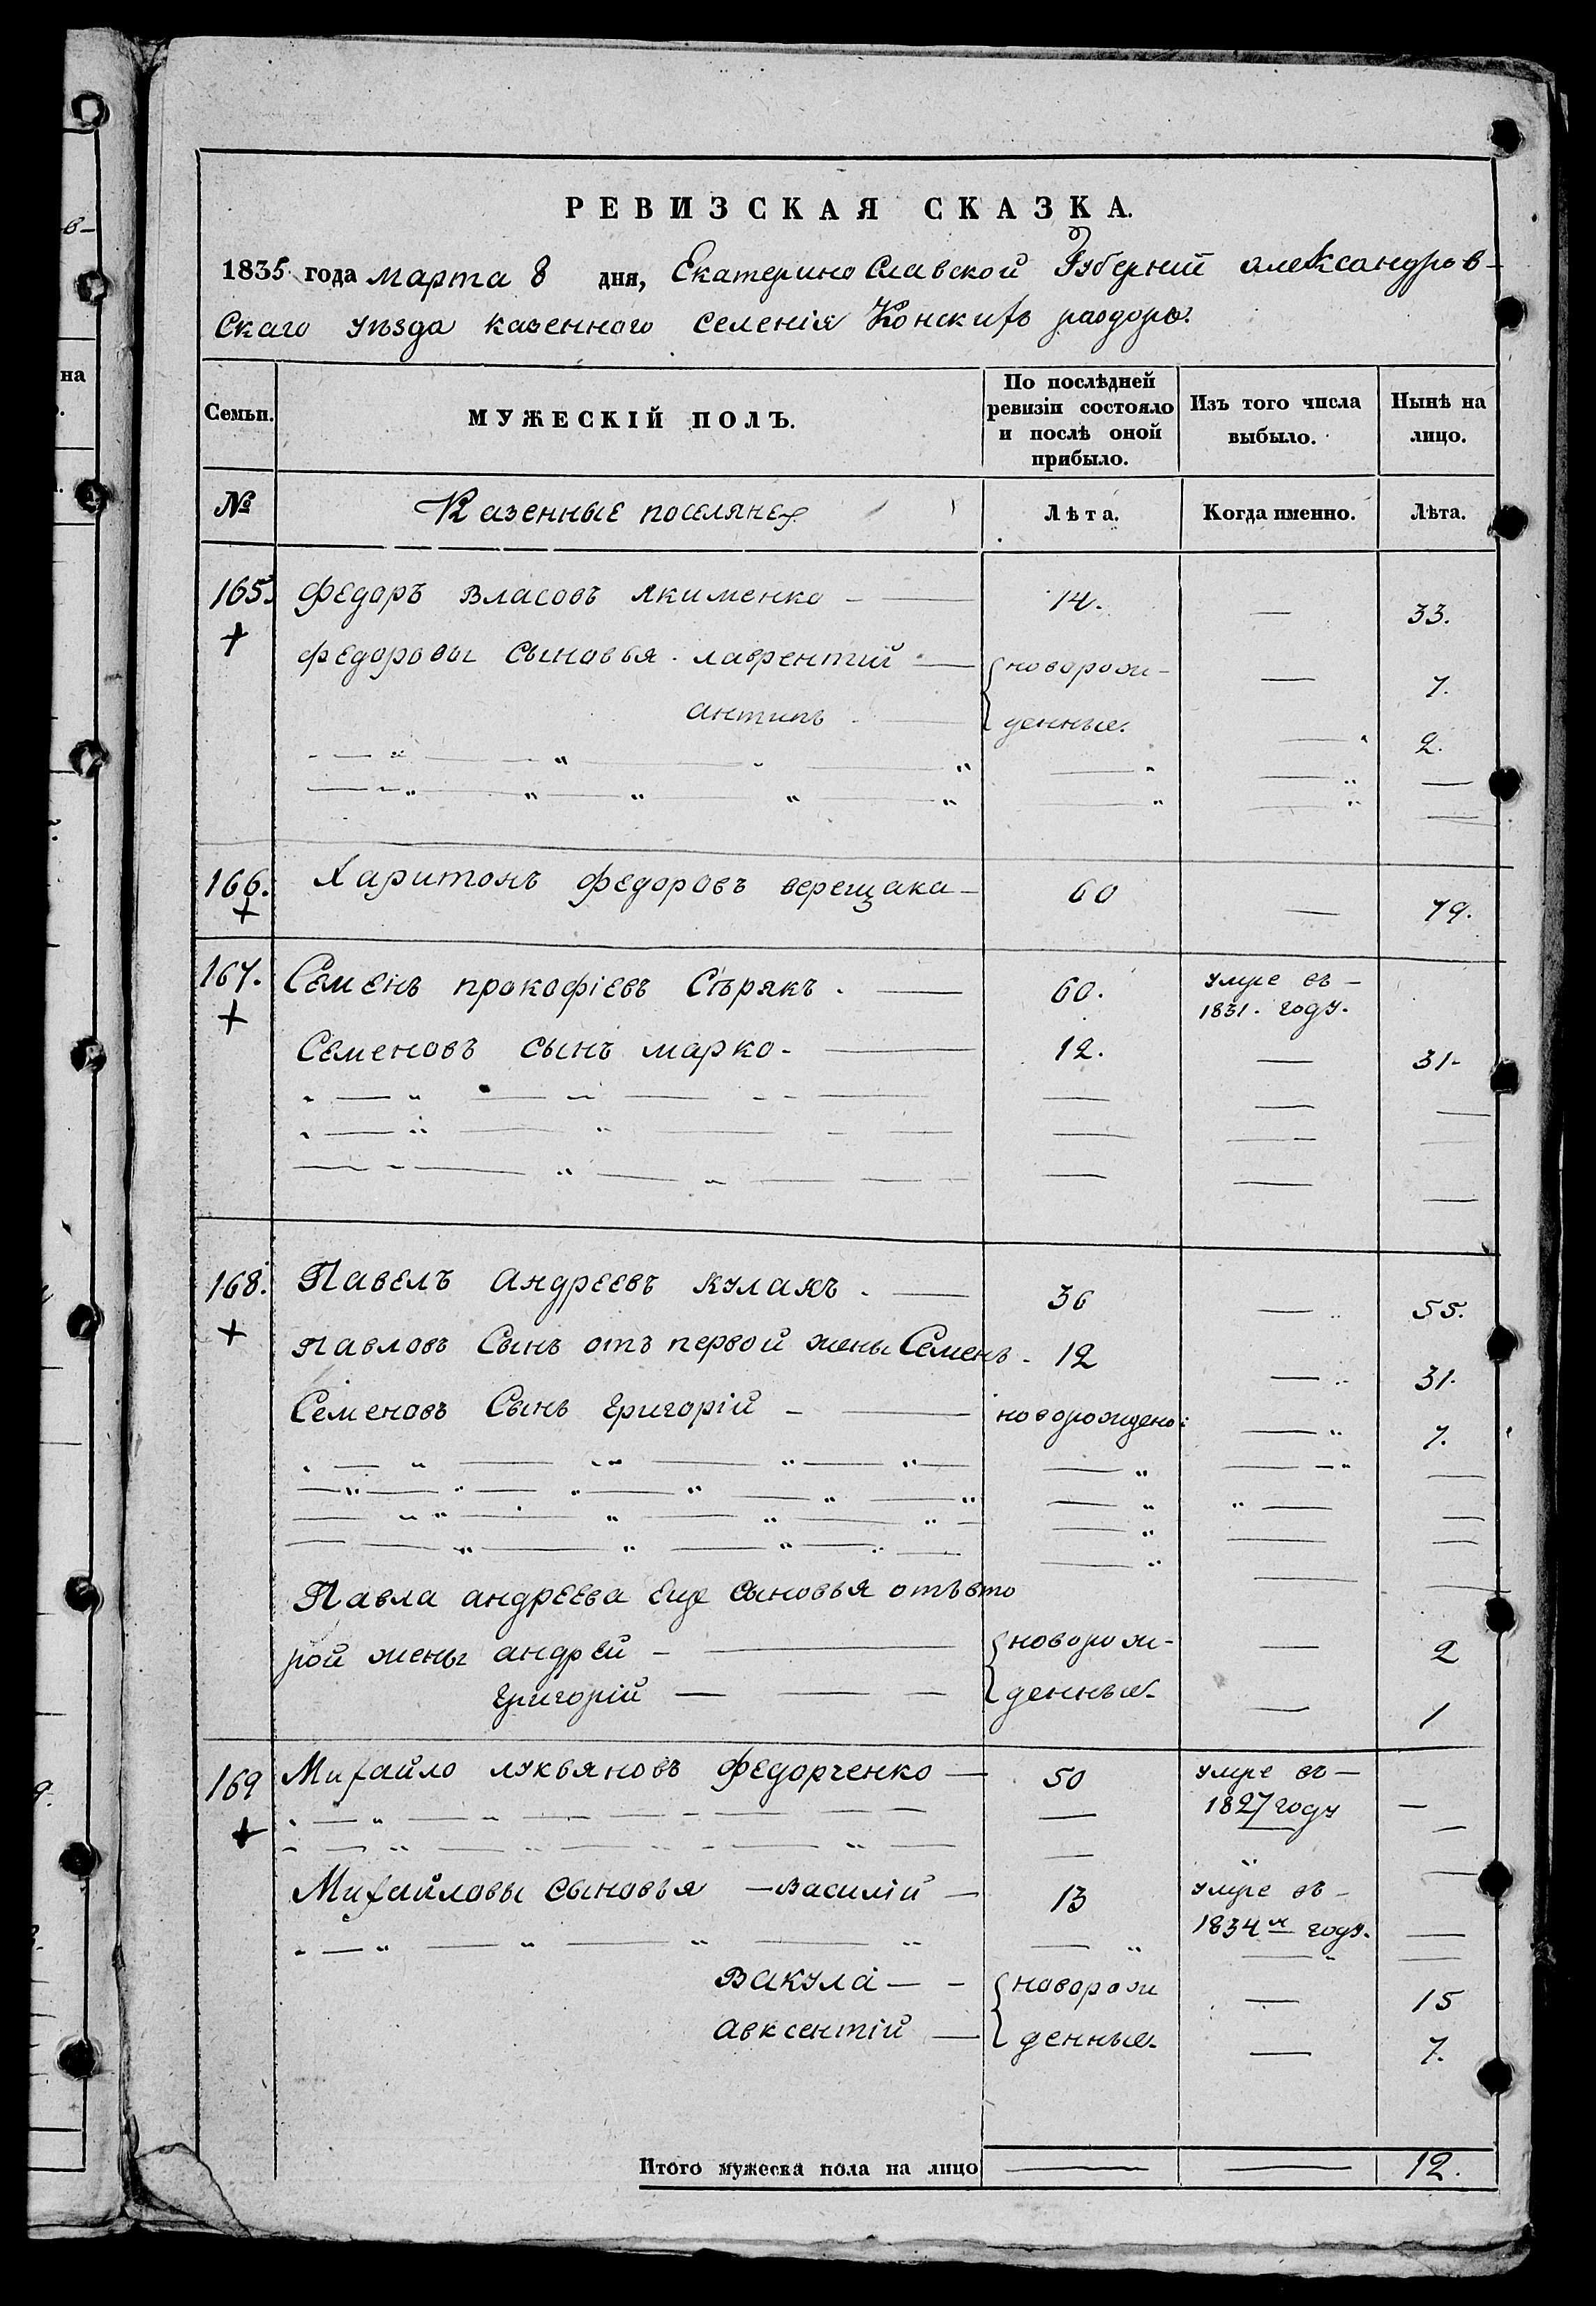 РЕВИЗСКАЯ СКАЗКА.
1835 года марта 8 дня, Екатеринославской Губернии александров-
скаго уѣзда казенного селенія Конскихъ раздоръ.
Семьи. МУЖЕСКІЙ ПОЛЪ. По послѣдней ревизіи состояло и послѣ оной прибыло. Изъ того числа выбыло. Нынѣ на лицо.
№ Казенные поселяне Лѣта. Когда именно. Лѣта.
165. Федоръ Власовъ Якименко — 14. — 33.
+ федоровы сыновья. лаврентий — новорож- — 7.
антипъ — денные. — 2.
166. Харитонъ федоровъ верещака — 60 — 79.
+
167. Семенъ прокофіевъ Сѣрякъ. — 60. умре въ —
1831. году.
+ Семеновъ сынъ марко. — 12. — 31.
168. Павелъ андреевъ кулакъ. — 36 — 55.
+ Павловъ Сынъ отъ первой жены Семенъ. 12 — 31.
Семеновъ Сынъ григорій — новорождено: — 7.
Павла андреева еще сыновья отъ вто
рой жены андрей — новорож- — 2
григорій — денные. — 1
169 Михайло лукьяновъ федорченко — 50 умре въ — —
1827 году
+
Михайловы сыновья — василій — 13 умре въ —
1834м году. —
Вакула — новорож — 15
авксентій — денные. — 7.
Итого мужеска пола на лицо — — 12.
на